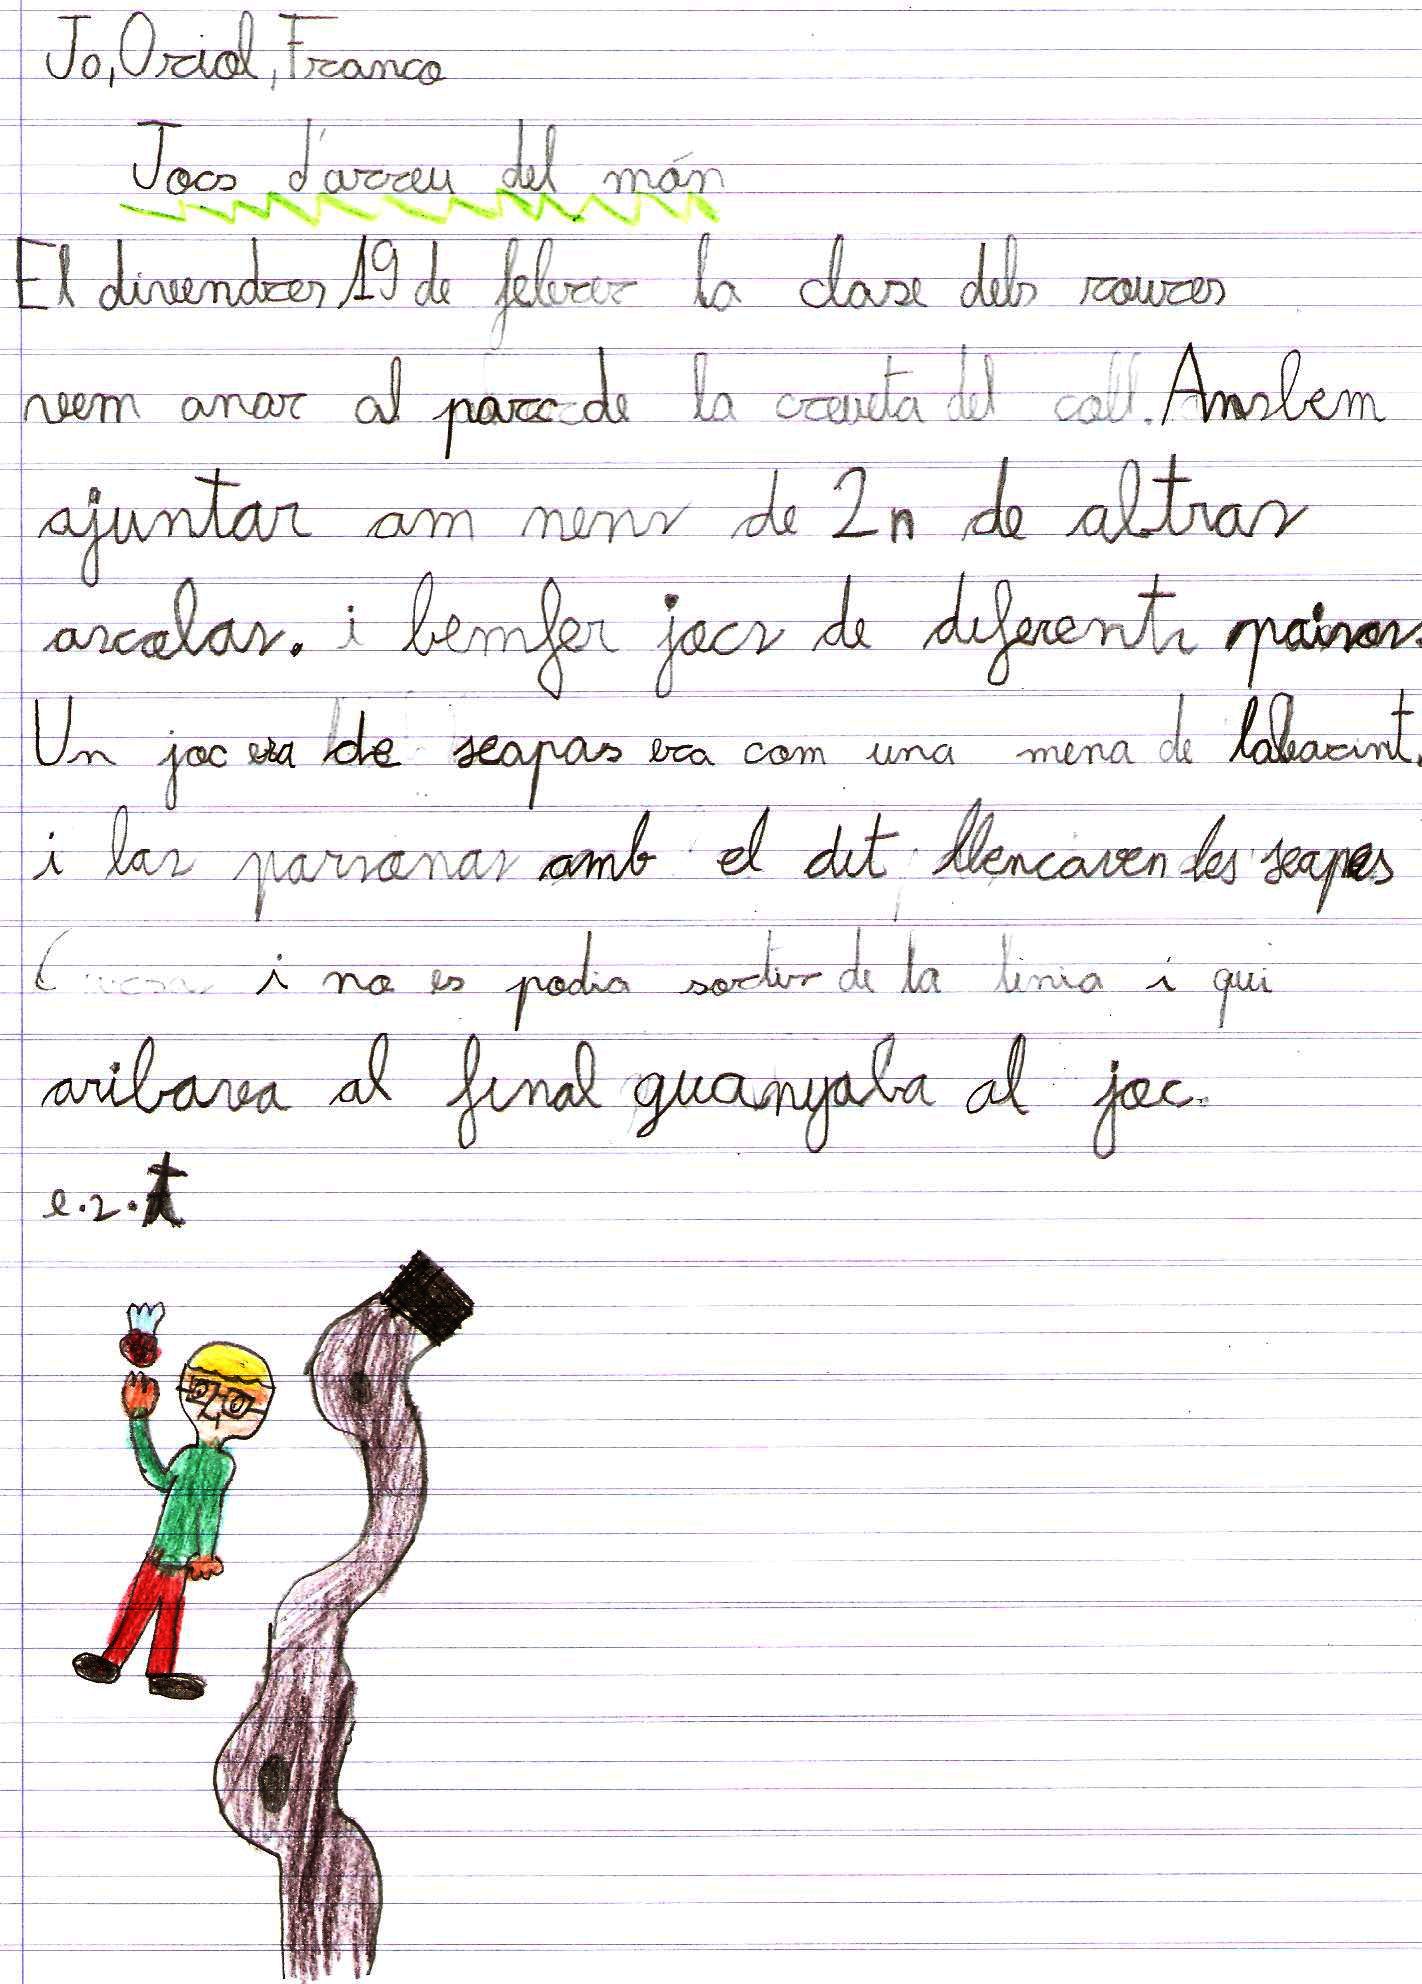 Jo, Oriol, Franco
Jocs d'arreu del mán
El divendres 19 de febrer la clase dels roures
vem anar al parc de la creueta del coll. Ansbem
ajuntar am nens de 2n de altras
ascolas. i bemfer jocs de diferents paisos.
Un joc era de seapas era com una mena de labarint.
i las parsonas amb el dit llencaven les seapes
i no es podia sortir de la linia i qui
aribava al final guanyaba al joc.
e.2.t